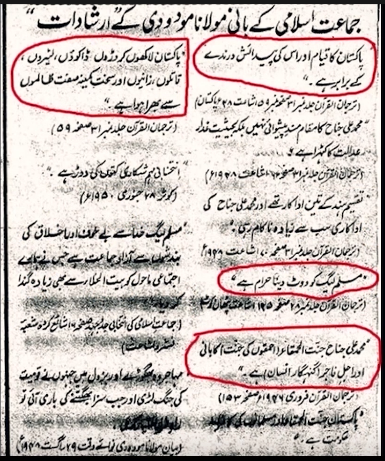 جماعت اسلامی کے بانی مولانا مودودی کے "ارشادات"
پاکستان کا قیام اور اس کی پیدائش درندے
کے برابر ہے۔
(ترجمان القرآن جلد نمبر ۳۱ صفحہ نمبر ۵۹ اشاعت ۱۹۴۸ پاکستان)
محمد علی جناح کا مقام مسند پیشوائی نہیں بلکہ بحیثیت غدار
عدالت کا کٹہرا ہے۔
(ترجمان القرآن جلد نمبر ۳۱ صفحہ اشاعت ۱۹۴۸ء)
تقسیم ہند کے تین اداکار تھے اور محمد علی جناح
کی اداکاری سب سے زیادہ ناکام رہی۔
(ترجمان القرآن جلد نمبر ۳۱ صفحہ ۷۰ اشاعت ۱۹۴۸ء)
"مسلم لیگ کو ووٹ دینا حرام ہے"
(ترجمان القرآن جلد نمبر ۲۸ صفحہ ۱۴۵ اشاعت پٹھان کوٹ)
محمد علی جناح جنت الحمقاء (احمقوں کی جنت) کا بانی
اور اجل فاجر (گنہگار انسان) ہے۔"
(ترجمان القرآن فروری ۱۹۴۶ء صفحہ ۱۵۳)
"پاکستان جنت الحمقاء اور مسلمانوں کی کافرانہ
حکومت ہے۔"
"پاکستان لاکھوں کروڑوں ڈاکوؤں، لٹیروں،
قاتلوں، زانیوں اور سخت کمینہ صفت ظالموں
سے بھرا ہوا ہے"
(ترجمان القرآن جلد نمبر ۳۱ صفحہ ۵۹)
"انتخابی مہم شکاری کتوں کی دوڑ ہے"
(کوثر ۲۸ جنوری ۱۹۵۰ء)
"مسلم لیگ خدا سے بے خوف اور اخلاق کی
بندشوں سے آزاد جماعت ہے جس نے ہمارے
اجتماعی ماحول کو بیت الخلاء سے بھی زیادہ گندا
کر دیا۔"
(جماعت اسلامی کی انتخابی جدوجہد صفحہ ۱۶ شائع کردہ شعبہ
نشر و اشاعت)
"مہاجر وہ بھگوڑے اور بزدل ہیں جنہوں نے قومیت
کی جنگ لڑی اور جب سزا بھگتنے کی باری آئی تو
(بیان مولانا مودودی نوائے وقت ۲۹ اگست ۱۹۴۸ء)